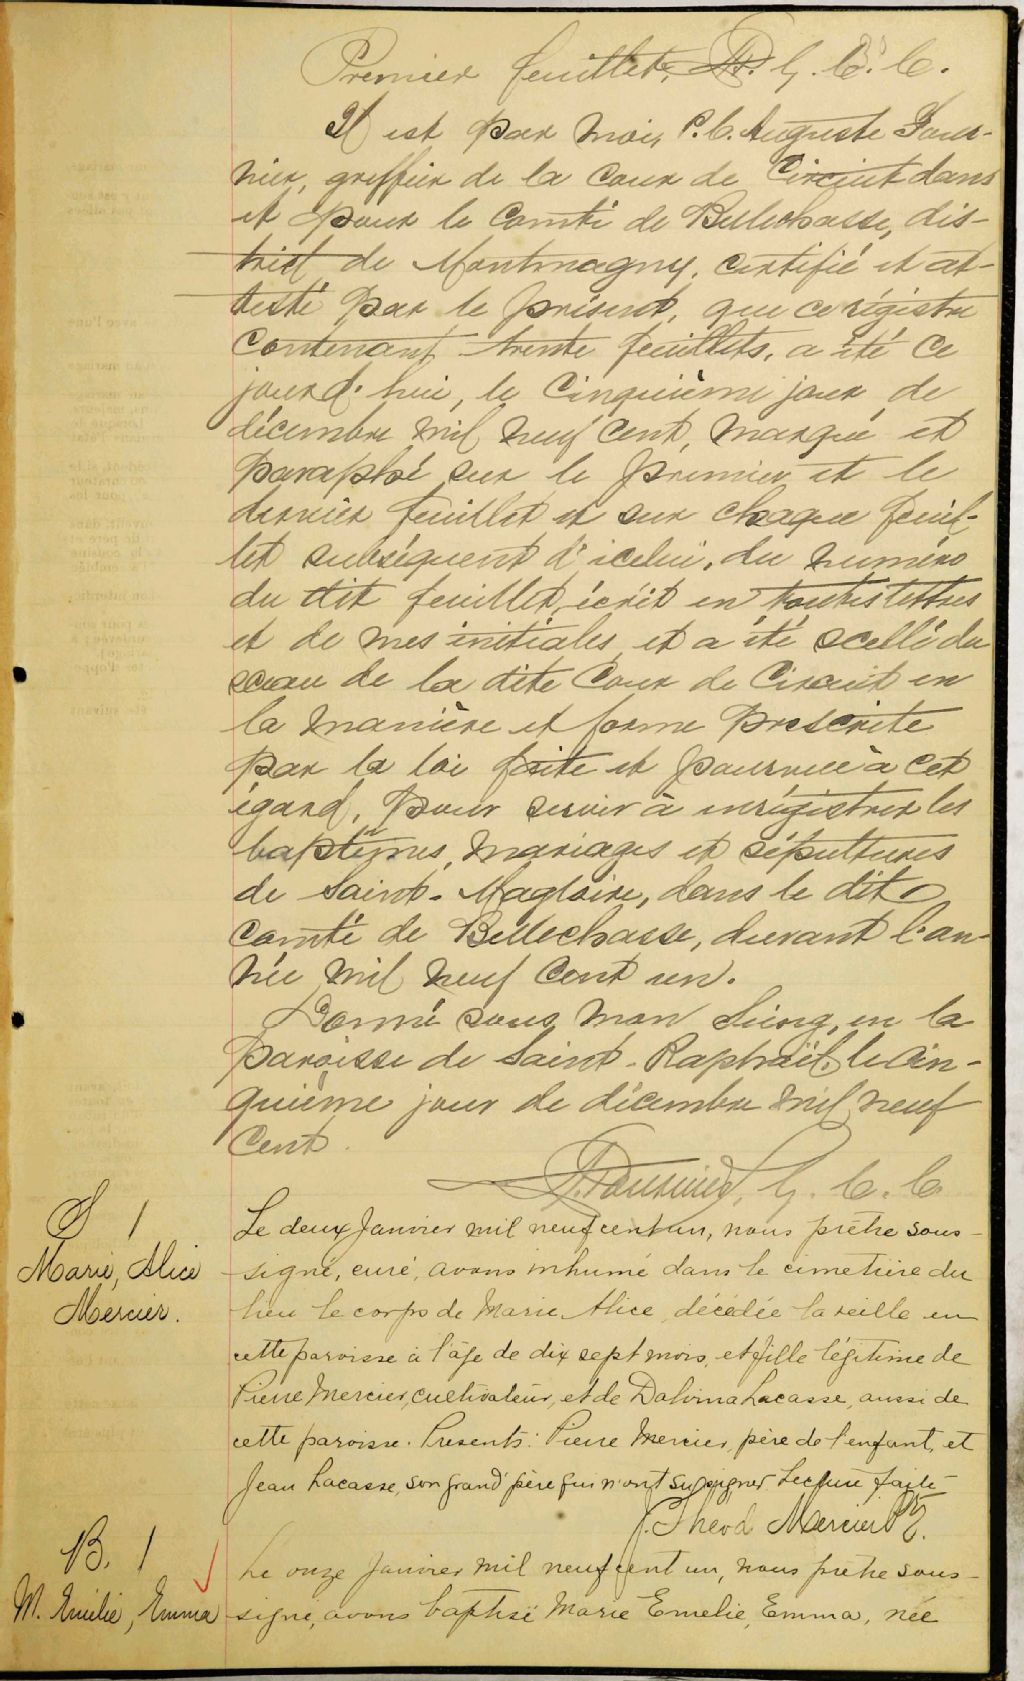 Premier feuillet, G. C. C.
Il est par moi, P. C. Auguste Four-
nier, greffier de la cour de Circuit dans
et pour le comté de Bellechasse, dis-
trict de Montmagny, certifié et at-
testé par le présent, que ce régistre
contenant trente feuillets, a été ce
jourd'hui, le cinquième jour de
décembre mil neuf cent, marqué et
paraphé sur le premier et le
dernier feuillet et sur chaque feuil-
let subséquent d'icelui, du numéro
du dit feuillet, écrit en toutes lettres
et de mes initiales, et a été scellé du
sceau de la dite Cour de Circuit en
la manière et forme prescrite
par la loi faite et pourvue à cet
égard, pour servir à enrégistrer les
baptêmes, mariages et sépultures
de Saint-Magloire, dans le dit
comté de Bellechasse, durant l'an-
née mil neuf cent un.
Donné sous mon Seing, en la
paroisse de Saint-Raphaël, le cin-
quième jour de décembre mil neuf
cent.
Fournier, G. C. C.
S 1
Marie, Alice
Mercier.
Le deux Janvier mil neuf cent un, nous prêtre sous-
signé, curé, avons inhumé dans le cimetière du
lieu le corps de Marie Alice, décédée la veille en
cette paroisse à l'âge de dix sept mois, et fille légitime de
Pierre Mercier, cultivateur, et de Dalvina Lacasse, aussi de
cette paroisse. Présents: Pierre Mercier, père de l'enfant, et
Jean Lacasse, son grand'père qui n'ont su signer. Lecture faite
J. Theod Mercier Ptre.
B. 1
M. Emilie, Emma
Le onze Janvier mil neuf cent un, nous prêtre sous-
signé, avons baptisé Marie Emelie, Emma, née